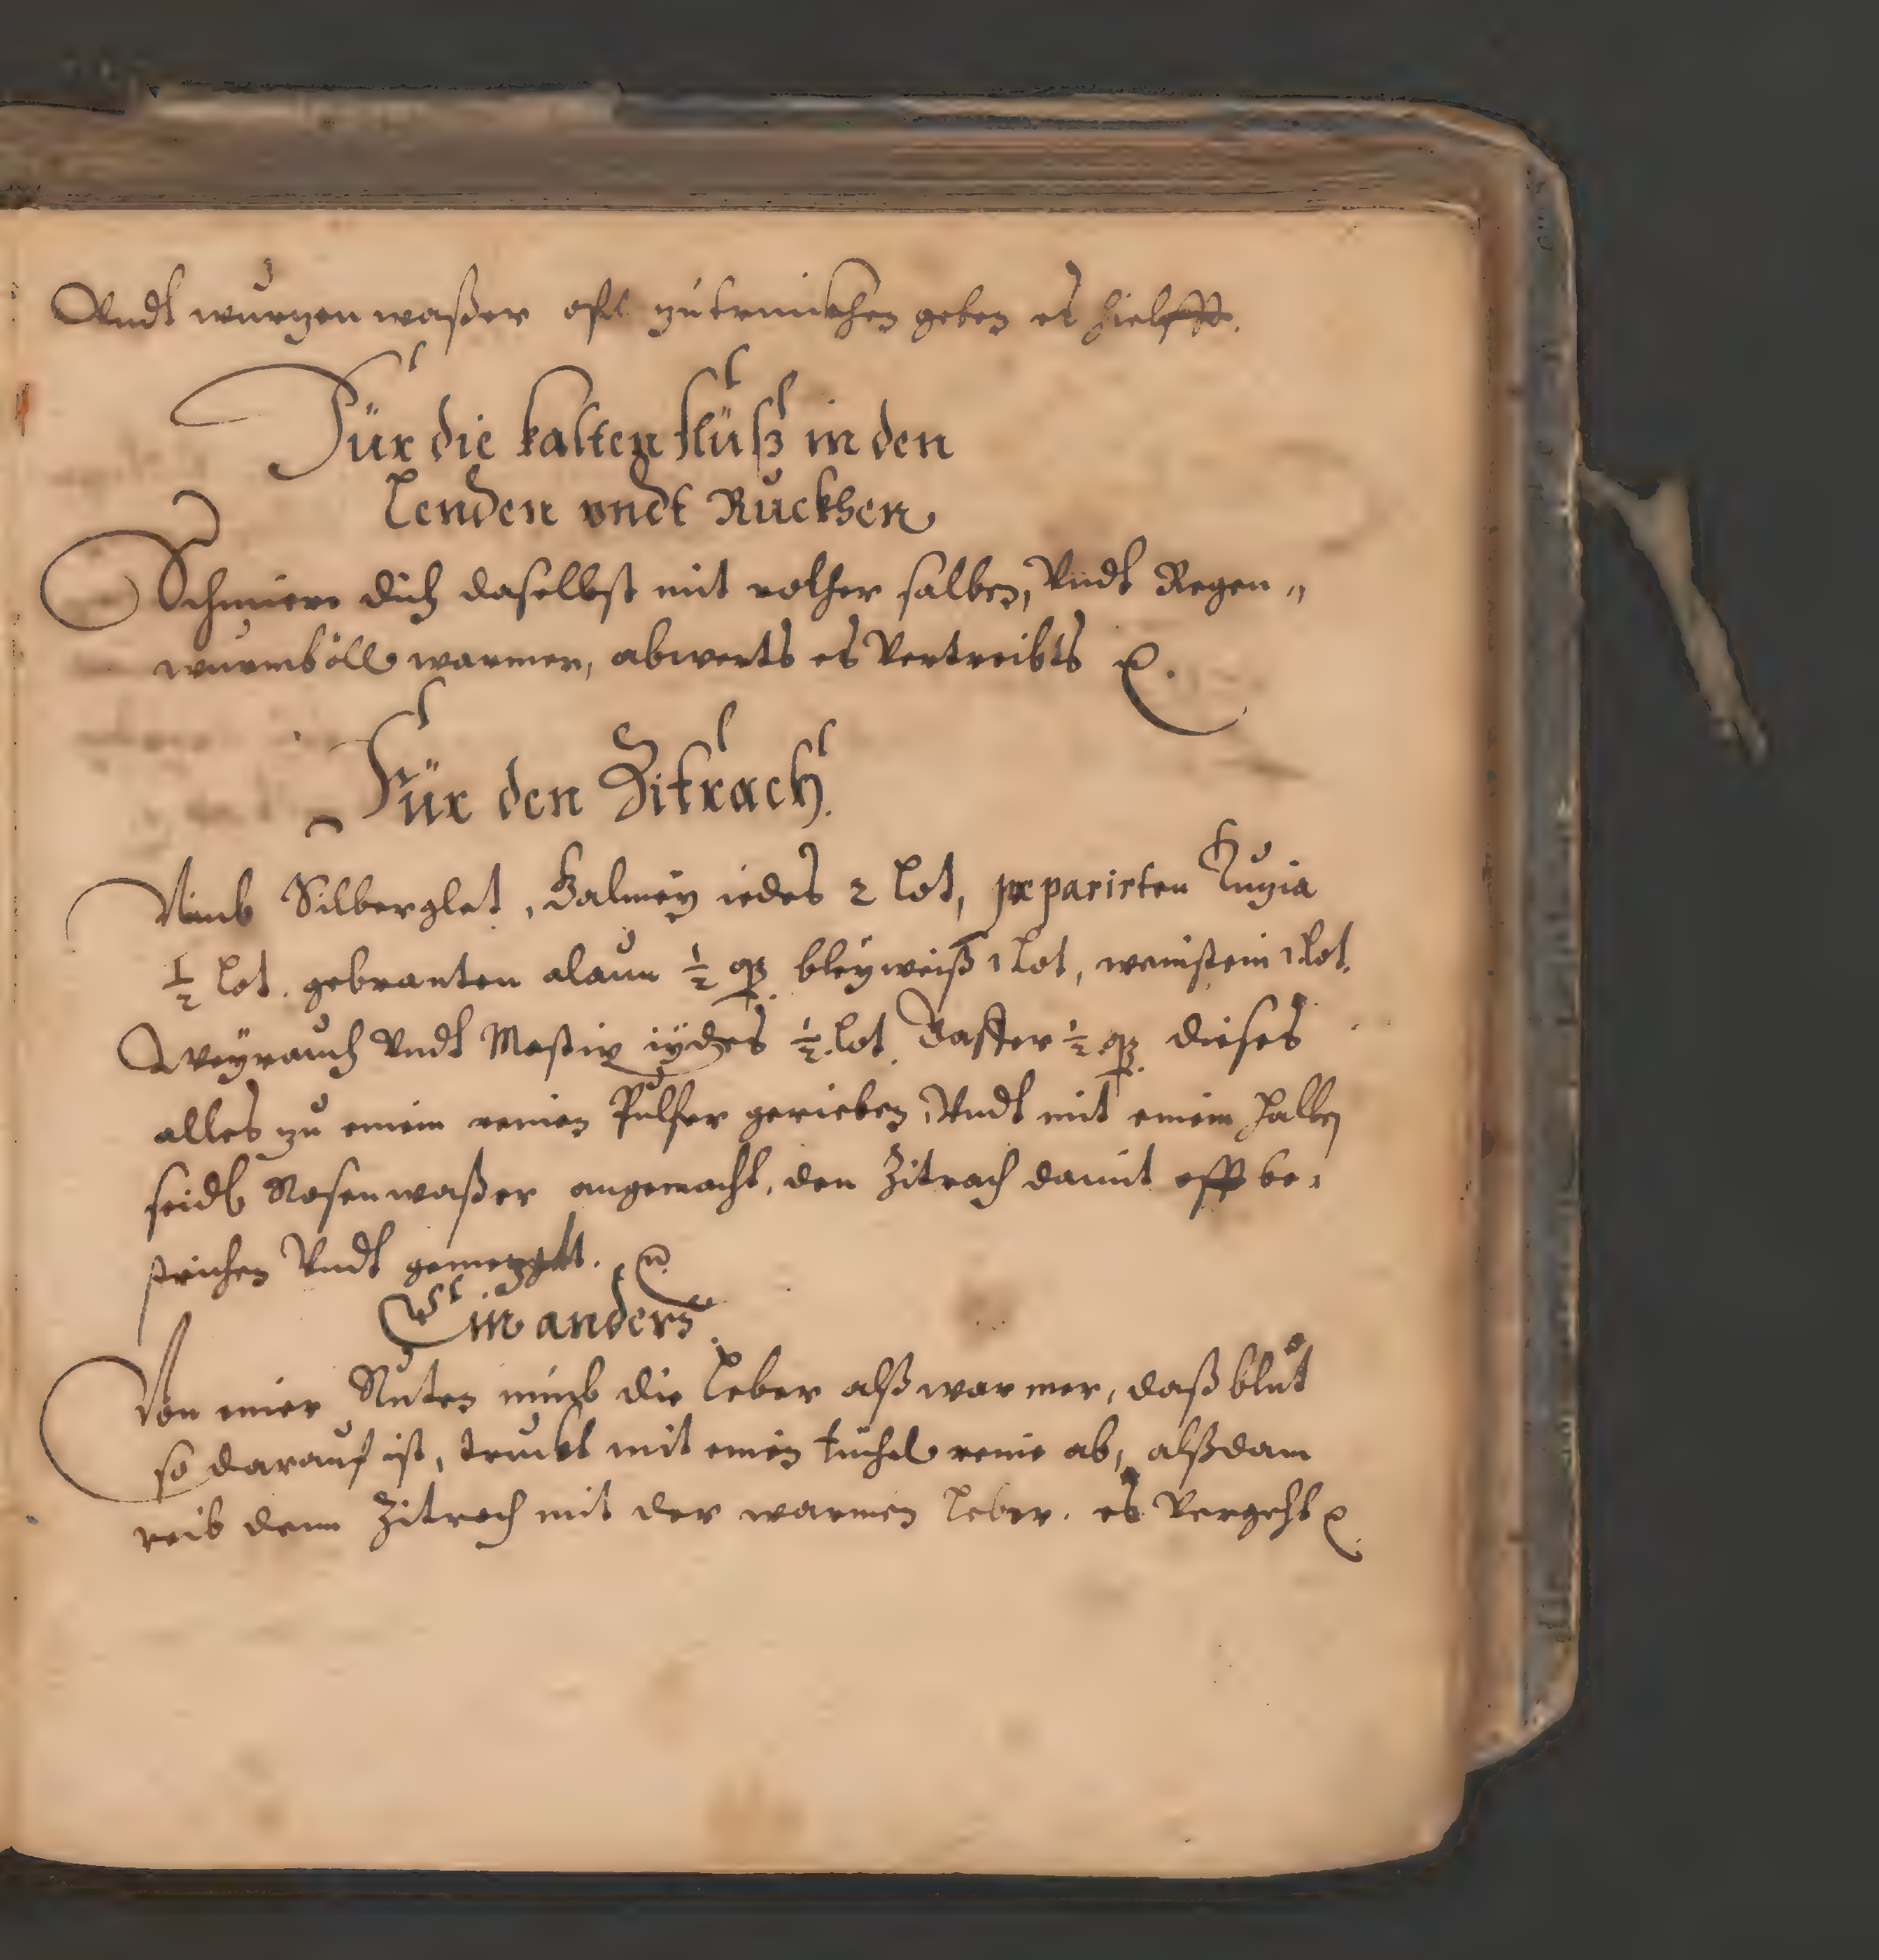 Vndt wurzen waßer offt zu trinickhen geben es hielfft.
Für die kalten flüß in den
Lenden vndt Ruckhen
Schmiere dich daselbst mit rother salben, Vndt Regen„
wurmböll warmer, abwerts es Vertreibts
Für den Zitrach.
Nimb Silberglet, Galmeÿ iedes 2 Lot, præparirten Tuzia
½ Lot. gebranten alaun ½ q̃ bleÿweiß 1 Lot, weinstein 1 Lot.
Weÿrauch Vndt Mastix iÿdes ½ Lot. ½ q̃ dieses
alles zu einem reinen Pulfer gerieben, Vndt mit einem halben
seidl Rosenwaßer angemacht, den Zitrach damit offt be„
strichen Vndt genezgtt.
Ein anders.
Von einer Ruten nimb die Leber alß warmer, daß blut
so darauf ist, truckt mit einen tüchel reine ab, alßdann
reib denn Zitrach mit der warmen Leber. es Vergeht